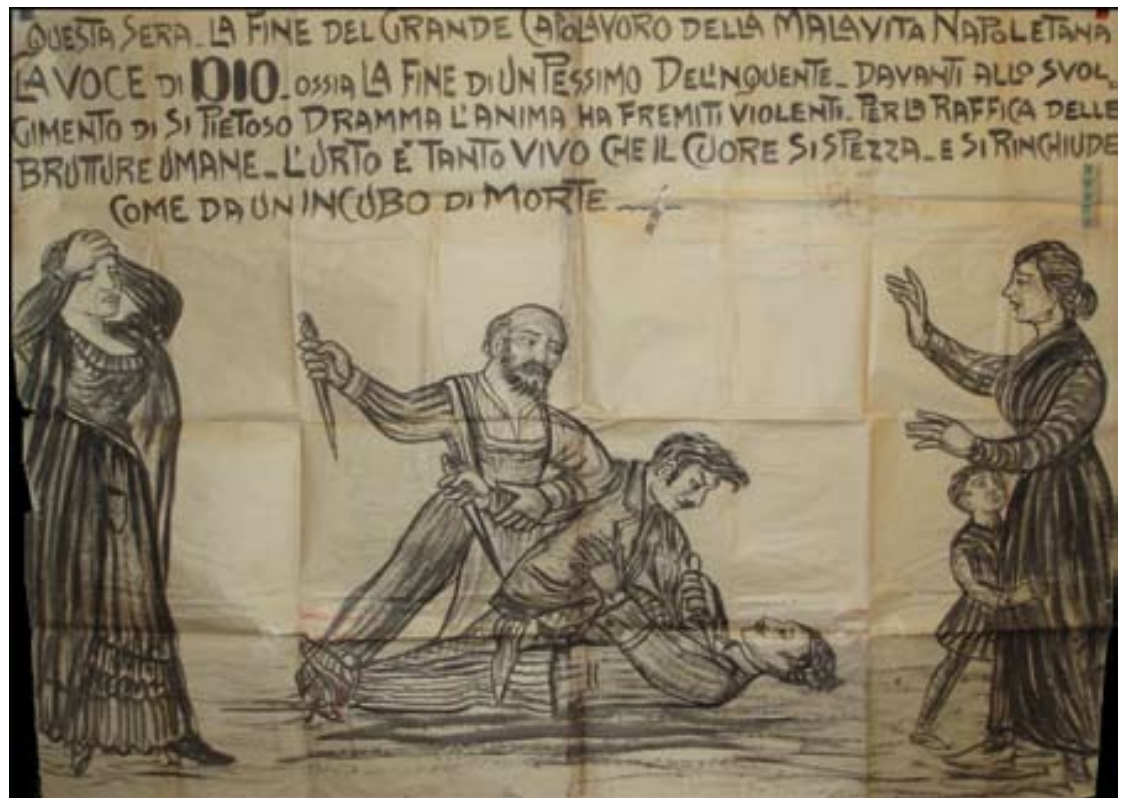 QUESTA SERA_ LA FINE DEL GRANDE CAPOLAVORO DELLA MALAVITA NAPOLETANA
LA VOCE DI DIO_ OSSIA LA FINE DI UN PESSIMO DELINQUENTE_ DAVANTI ALLO SVOL_
GIMENTO DI SI PIETOSO DRAMMA L'ANIMA HA FREMITI VIOLENTI. PER LA RAFFICA DELLE
BRUTTURE UMANE_ L'URTO E' TANTO VIVO CHE IL CUORE SI SPEZZA_ E SI RINCHIUDE
COME DA UN INCUBO DI MORTE